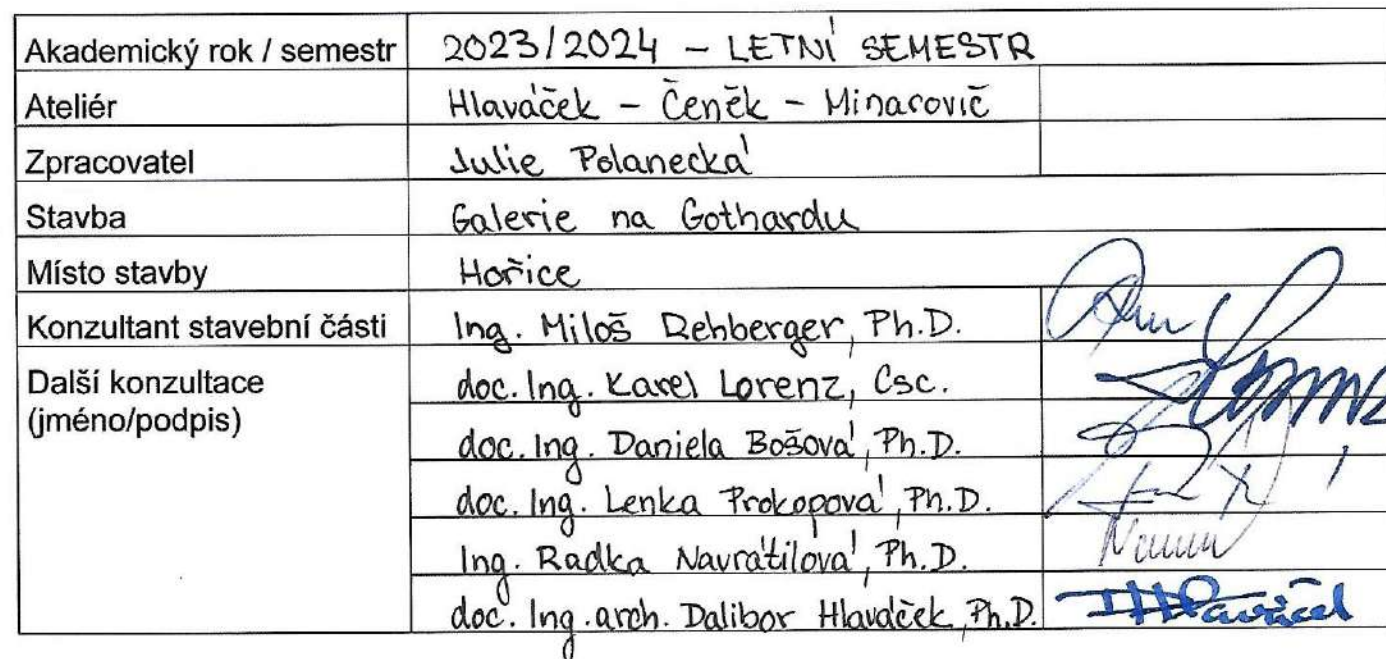 Akademický rok / semestr 2023/2024 – LETNÍ SEMESTR
Ateliér Hlaváček – Čeněk – Minarovič
Zpracovatel Julie Polanecká
Stavba Galerie na Gothardu
Místo stavby Hořice
Konzultant stavební části Ing. Miloš Rehberger, Ph.D.
Další konzultace doc. Ing. Karel Lorenz, Csc.
(jméno/podpis)
doc. Ing. Daniela Bošová, Ph.D.
doc. Ing. Lenka Prokopová, Ph.D.
Ing. Radka Navrátilová, Ph.D.
doc. Ing. arch. Dalibor Hlaváček, Ph.D.